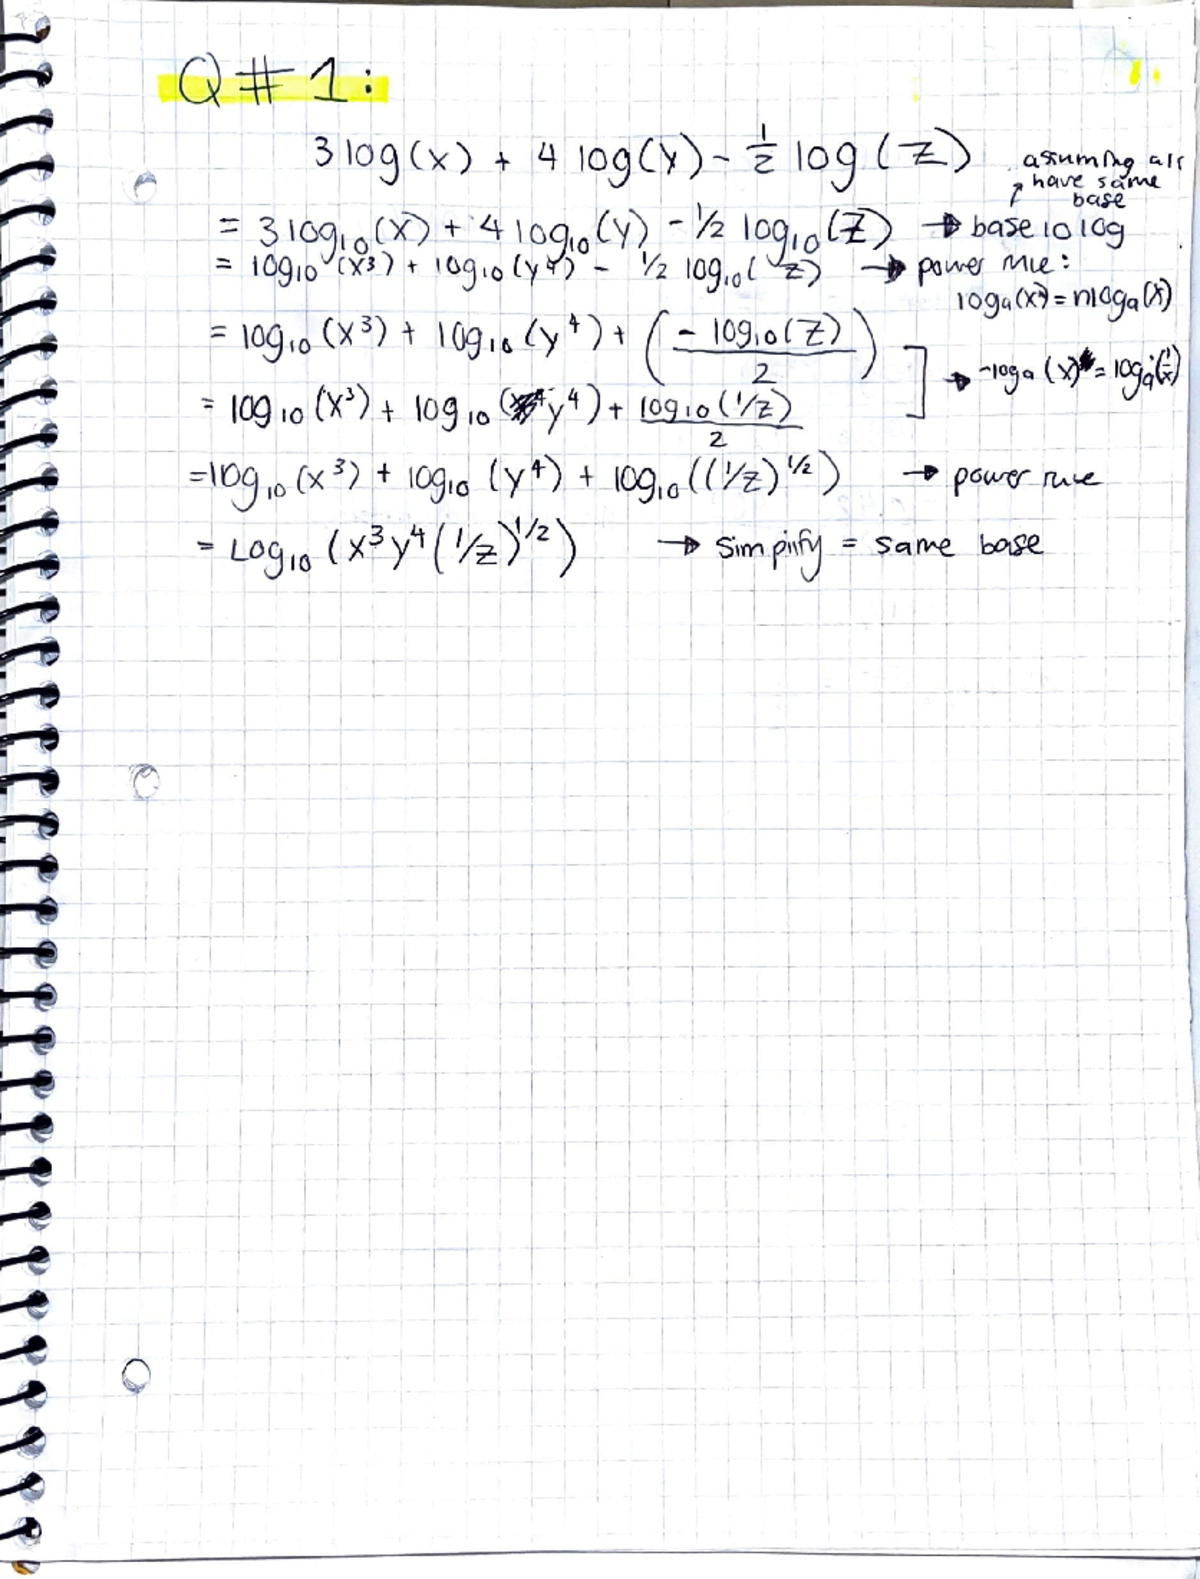 Q#1:
3 log(x) + 4 log(y) - 1/2 log(z)
assuming all
have same
base
= 3 log₁₀(x) + 4 log₁₀(y) - 1/2 log₁₀(z) → base 10 log
= log₁₀(x³) + log₁₀(y⁴) - 1/2 log₁₀(z) → power rule:
logₐ(xⁿ) = n logₐ(x)
= log₁₀(x³) + log₁₀(y⁴) + (-log₁₀(z)/2)
→ -logₐ(x) = logₐ(1/x)
= log₁₀(x³) + log₁₀(y⁴) + log₁₀(1/z)/2
= log₁₀(x³) + log₁₀(y⁴) + log₁₀((1/z)^1/2) → power rule
= Log₁₀(x³y⁴(1/z)^1/2) → simplify = same base